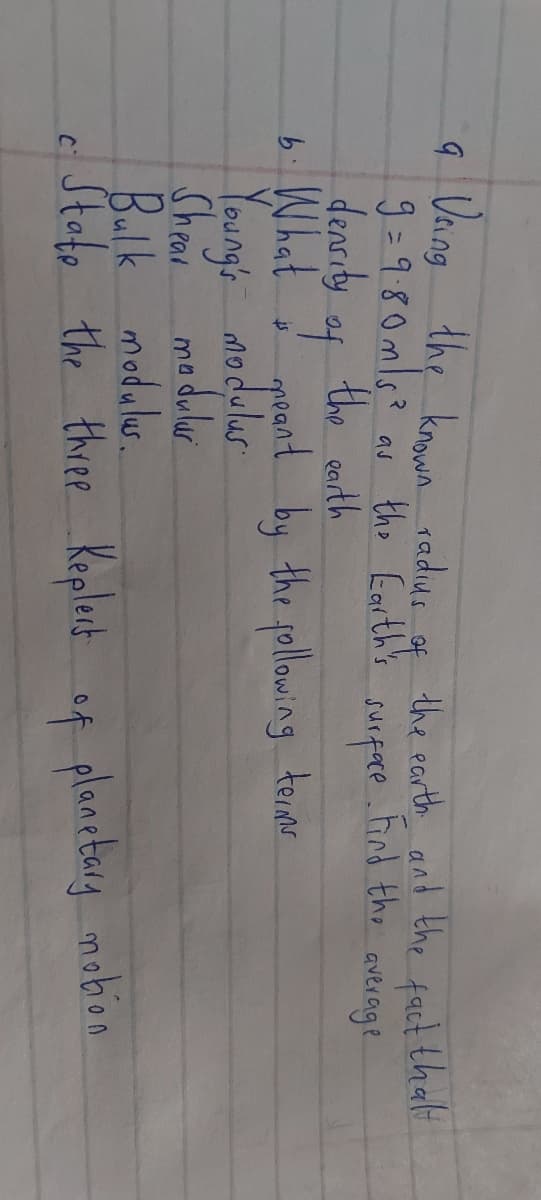 a Using the known radius of the earth and the fact that
g = 9.80 m/s² as the Earth's surface. Find the average
density of the earth
b. What is meant by the following terms
Young's modulus.
Shear modulus
Bulk modulus.
c. State the three Keplers of planetary motion